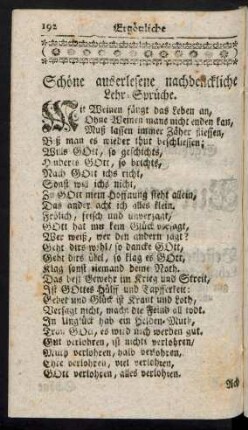 192 Ergötzliche
Schöne auserlesene nachdenckliche
Lehr-Sprüche.
Mit Weinen fängt das Leben an,
Ohne Weinen mans nicht enden kan,
Muß lassen immer Zäher fliessen,
Biß man es wieder thut beschliessen;
Wills GOtt, so geschichts,
Hinderts GOtt, so brichts,
Nach GOtt ichs richt,
Sonst will ichs nicht,
Zu GOtt mein Hoffnung steht allein,
Das ander acht ich alles klein,
Frölich, frisch und unverzagt,
GOtt hat mir kein Glück versagt,
Wer weiß, wer den andern jagt?
Geht dirs wohl, so dancke GOtt,
Geht dirs übel, so klag es GOtt,
Klag sonst niemand deine Noth.
Das best Gewehr im Krieg und Streit,
Ist GOttes Hülff und Tapfferkeit:
Gebet und Glück ist Kraut und Loth,
Versagt nicht, macht die Feind all todt.
In Unglück hab ein Helden-Muth,
Trau GOtt, es wird noch werden gut.
Gut verlohren, ist nichts verlohren,
Muth verlohren, halb verlohren,
Ehre verlohren, viel verlohren,
GOtt verlohren, alles verlohren.
Ach